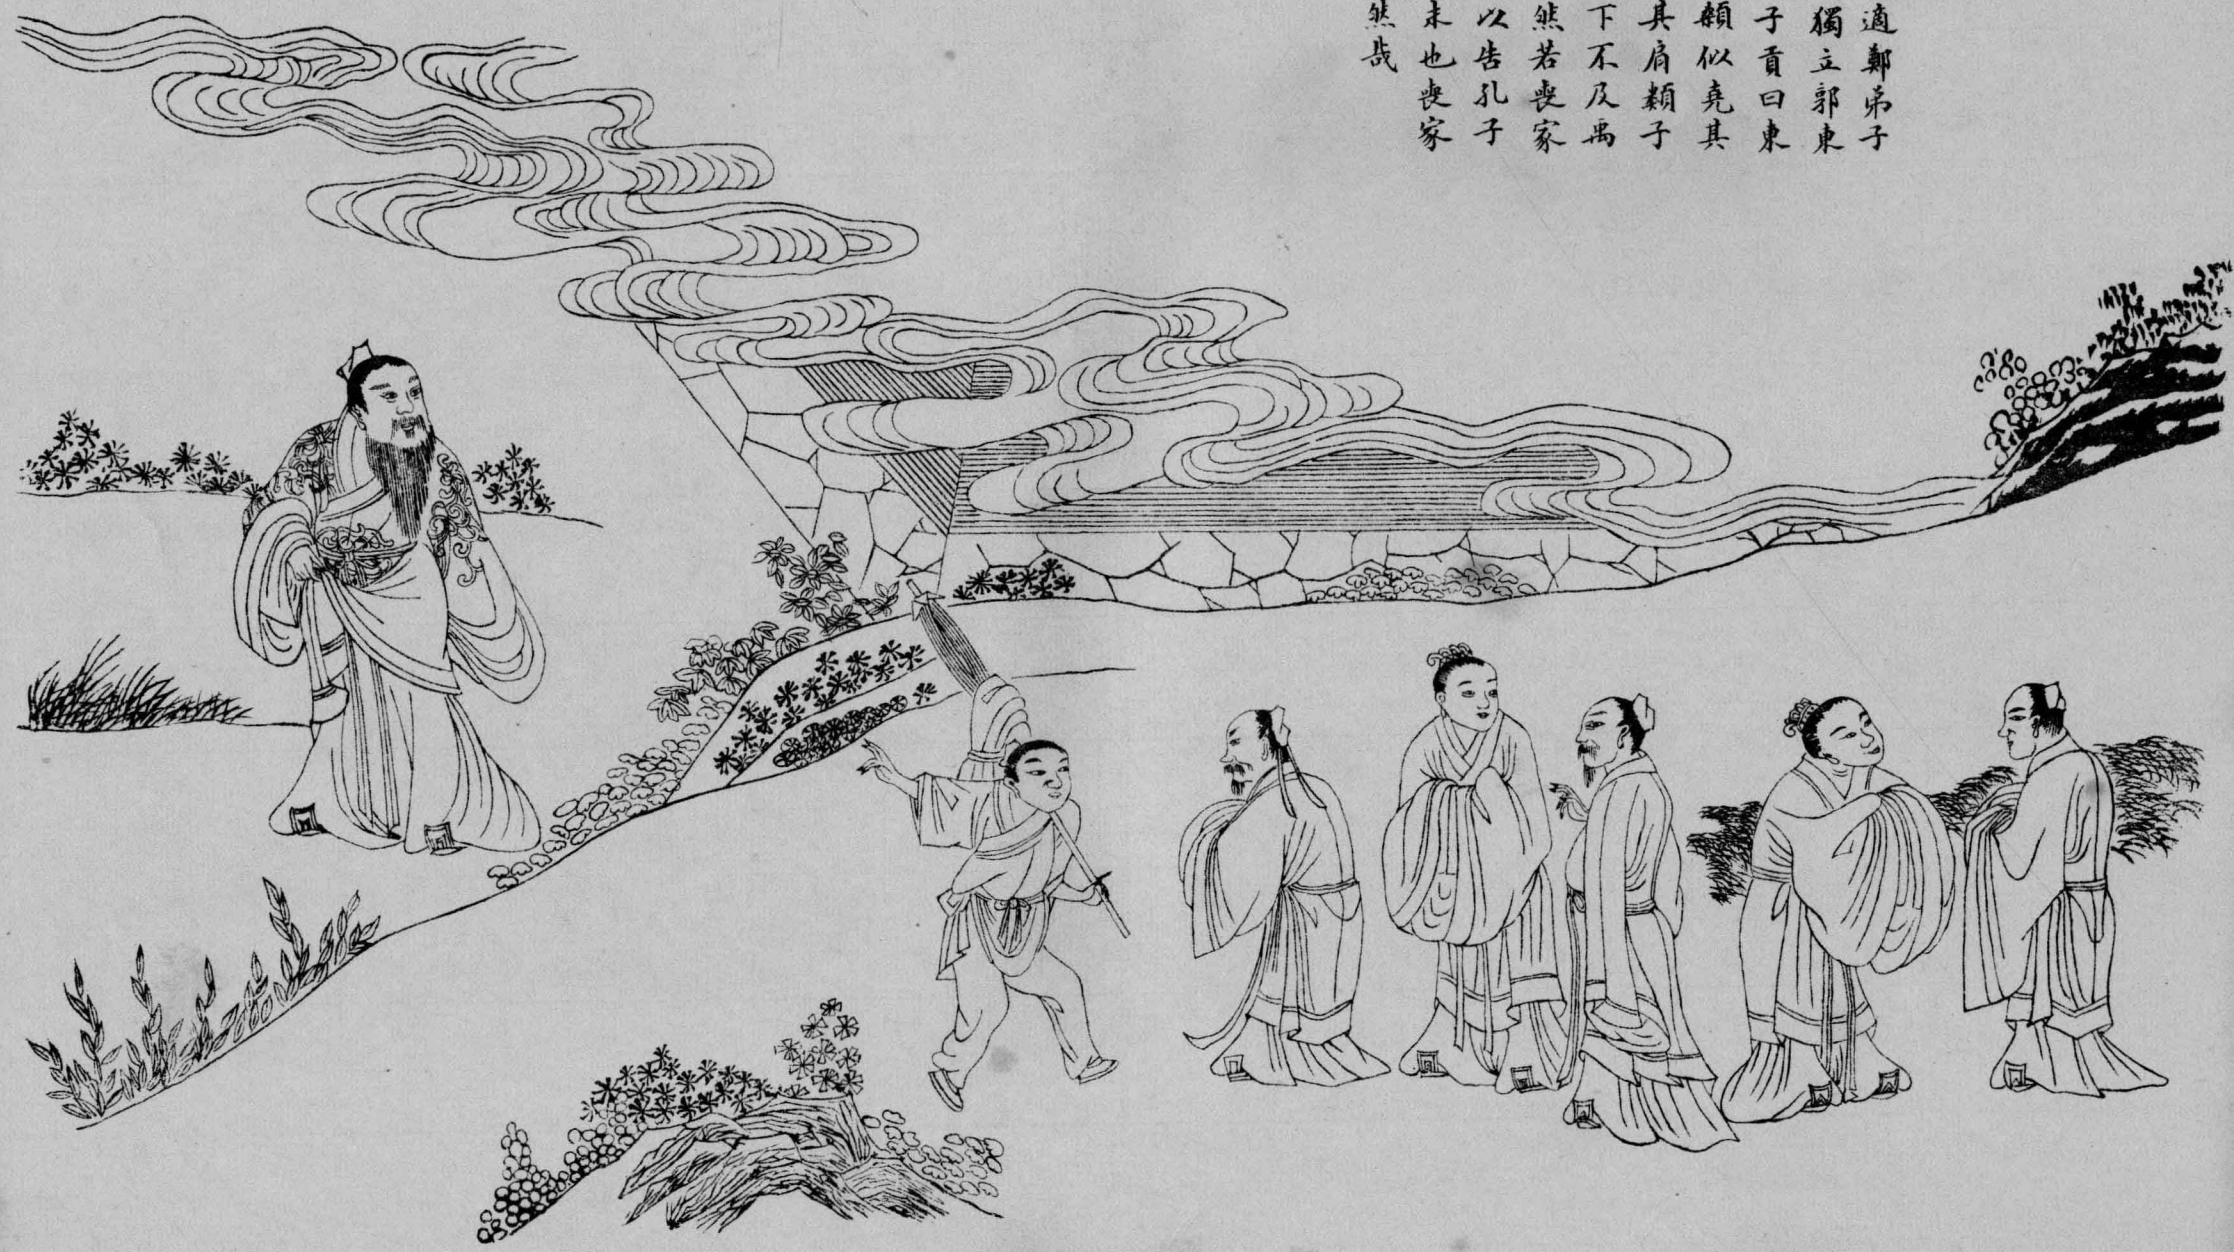 適鄭弟子
獨立郭東
子貢曰東
顙似堯其
其肩類子
下不及禹
然若喪家
以告孔子
末也喪家
然哉